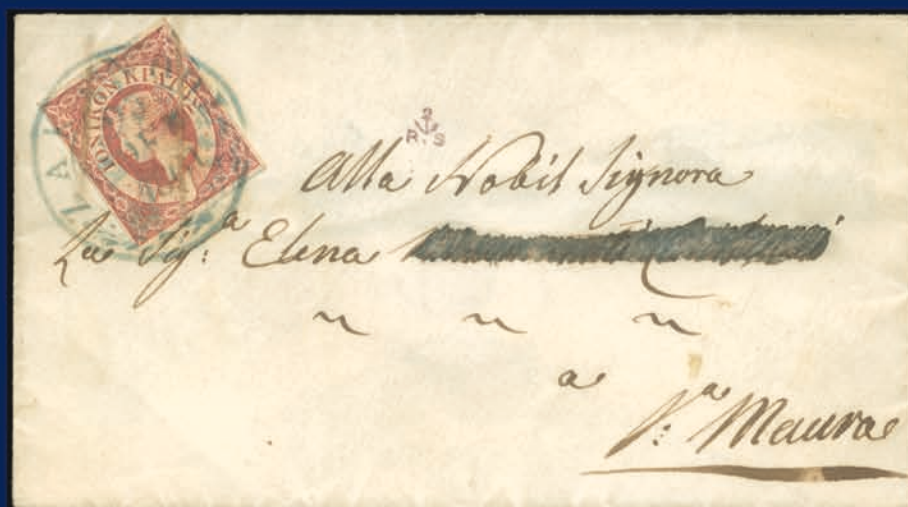 ΙΟΝΙΚΟΝ ΚΡΑΤΟΣ
ZA
2
R S
Alla Nobil Signora
La Sig.ª Elena
a
S.ª Maura